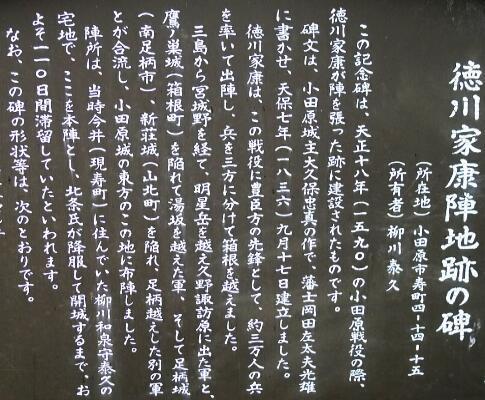 徳川家康陣地跡の碑
（所在地）小田原市寿町四-十四-十五
（所有者）柳川泰久
この記念碑は、天正十八年（一五九〇）の小田原戦役の際、
徳川家康が陣を張った跡に建設されたものです。
碑文は、小田原城主大久保忠真の作で、藩士岡田左太夫光雄
に書かせ、天保七年（一八三六）九月十七日建立しました。
徳川家康は、この戦役に豊臣方の先鋒として、約三万人の兵
を率いて出陣し、兵を三方に分けて箱根を越えました。
三島から宮城野を経て、明星岳を越え久野諏訪原に出た軍と、
鷹ノ巣城（箱根町）を陥れて湯坂を越えた軍、そして足柄城
（南足柄市）、新荘城（山北町）を陥れ、足柄越えした別の軍
とが合流し、小田原城の東方のこの地に布陣しました。
陣所は、当時今井（現寿町）に住んでいた柳川和泉守泰久の
宅地で、ここを本陣とし、北条氏が降服して開城するまで、お
よそ一一〇日間滞留していたといわれます。
なお、この碑の形状等は、次のとおりです。